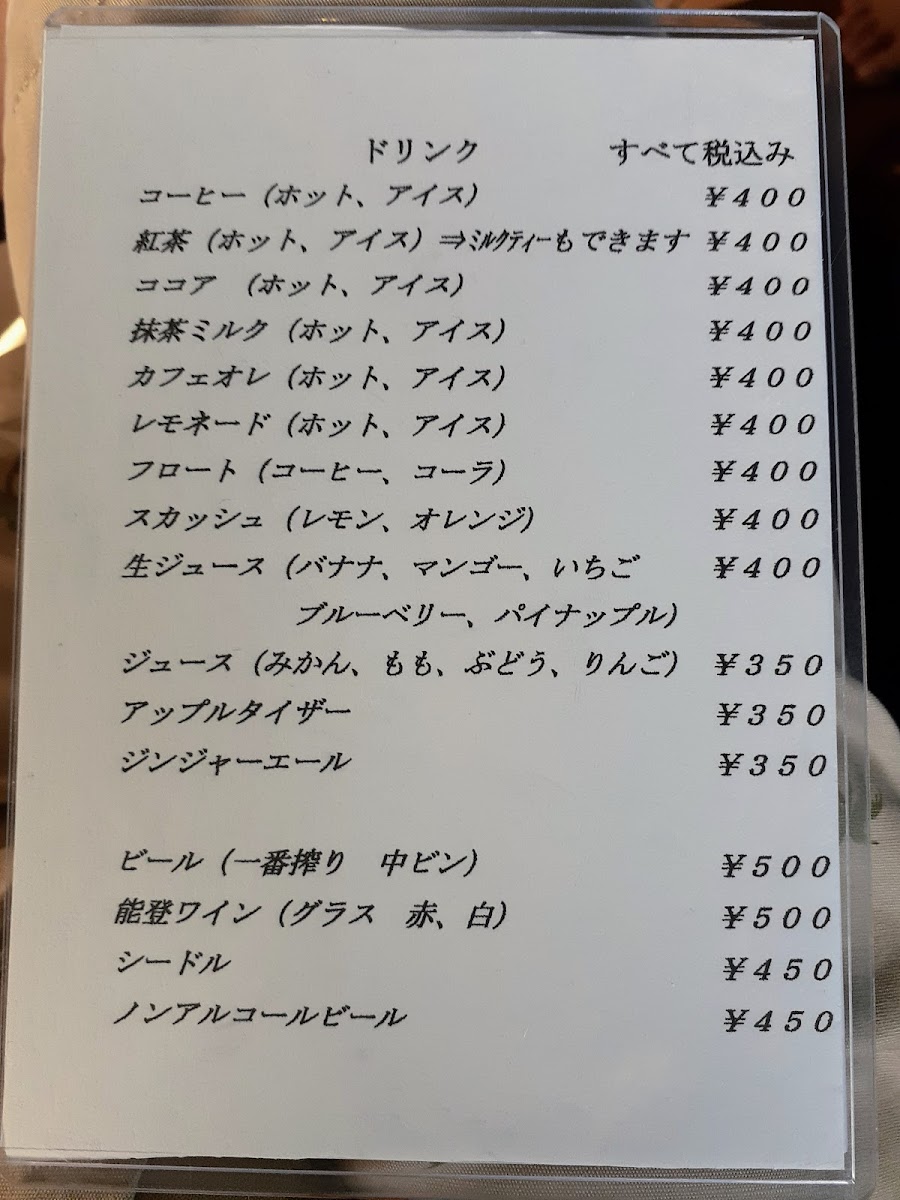 ドリンク　すべて税込み
コーヒー（ホット、アイス）　￥４００
紅茶（ホット、アイス）⇒ﾐﾙｸﾃｨｰもできます　￥４００
ココア　（ホット、アイス）　￥４００
抹茶ミルク（ホット、アイス）　￥４００
カフェオレ（ホット、アイス）　￥４００
レモネード（ホット、アイス）　￥４００
フロート（コーヒー、コーラ）　￥４００
スカッシュ（レモン、オレンジ）　￥４００
生ジュース（バナナ、マンゴー、いちご　￥４００
ブルーベリー、パイナップル）
ジュース（みかん、もも、ぶどう、りんご）　￥３５０
アップルタイザー　￥３５０
ジンジャーエール　￥３５０
ビール（一番搾り　中ビン）　￥５００
能登ワイン（グラス　赤、白）　￥５００
シードル　￥４５０
ノンアルコールビール　￥４５０